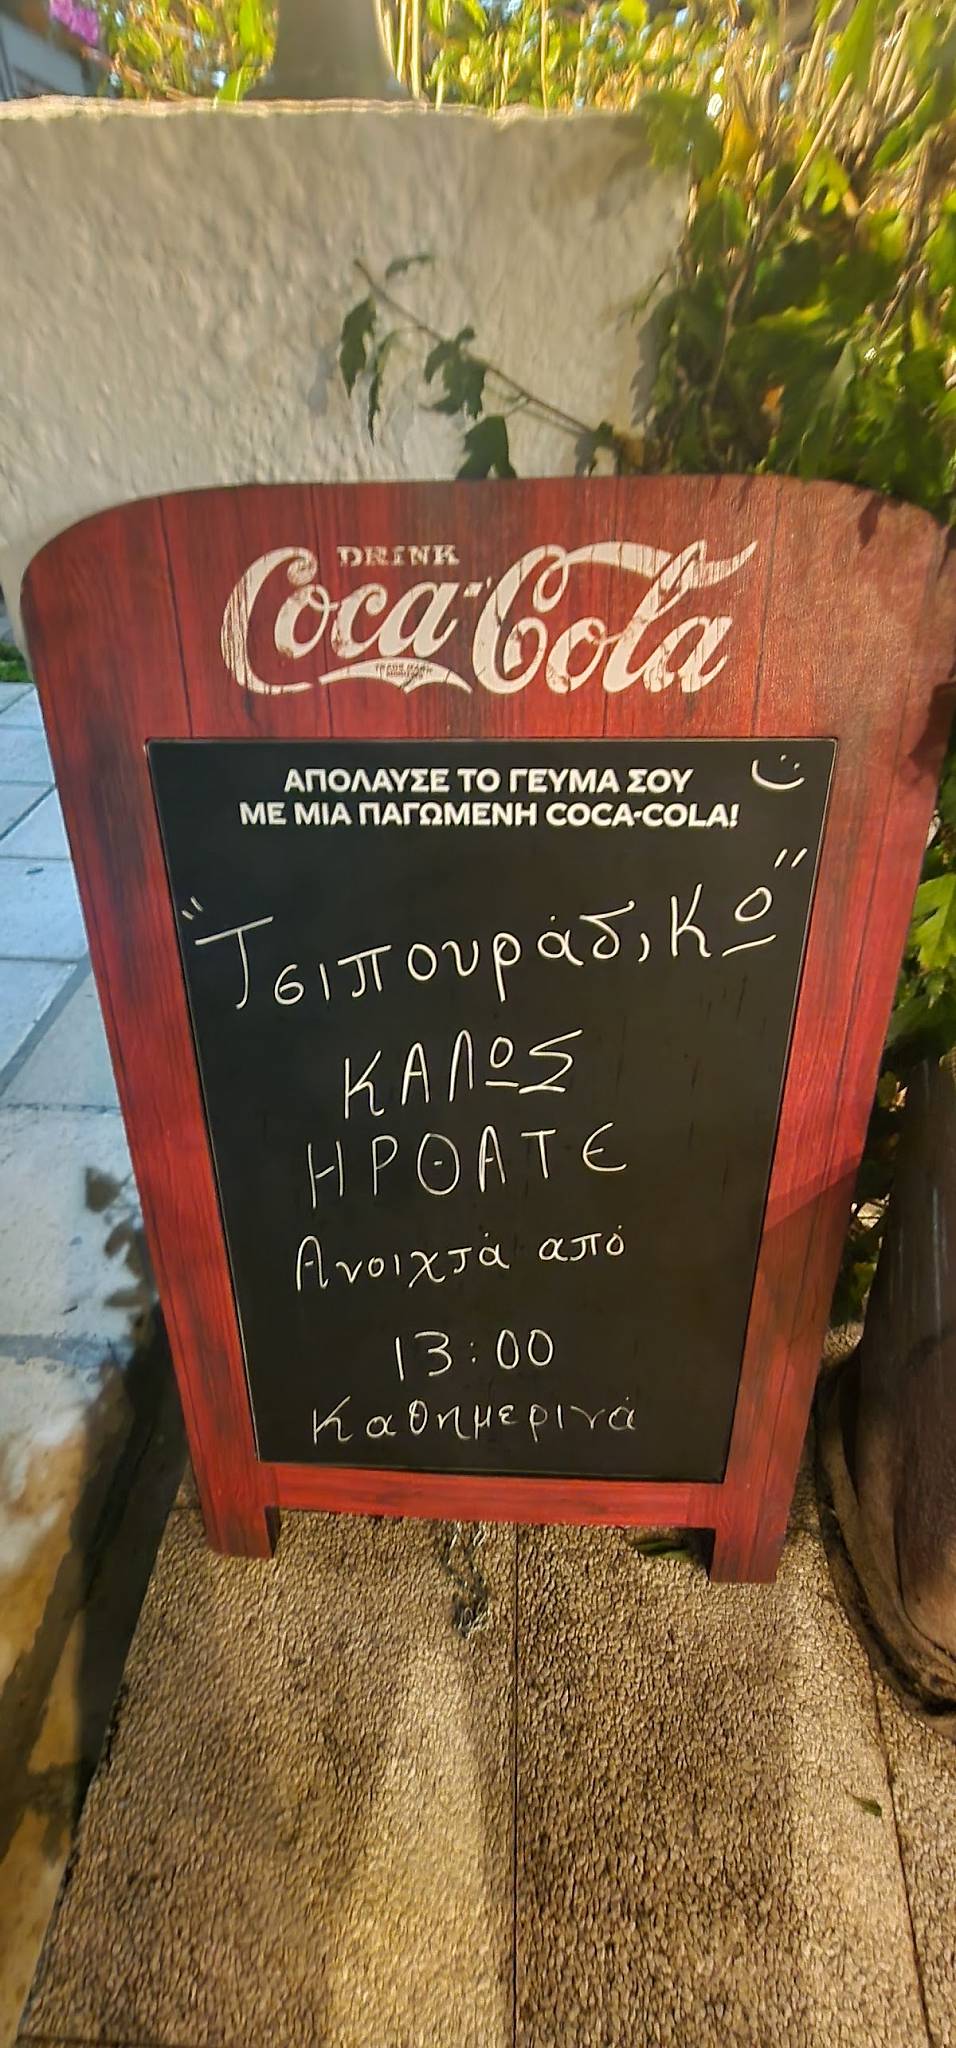 DRINK
Coca-Cola
ΑΠΟΛΑΥΣΕ ΤΟ ΓΕΥΜΑ ΣΟΥ
ΜΕ ΜΙΑ ΠΑΓΩΜΕΝΗ COCA-COLA!
"Τσιπουράδ,ΚΩ"
ΚΑΛΩΣ
ΗΡΘΑΤΕ
Ανοιχτά από
13:00
Καθημερινά